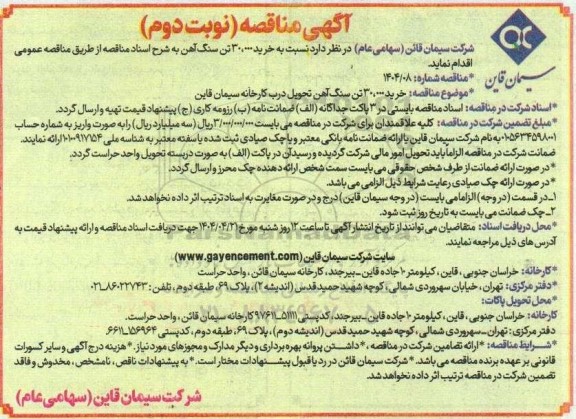 آگهی مناقصه (نوبت دوم)
سیمان قاین
شرکت سیمان قائن (سهامی عام) در نظر دارد نسبت به خرید ۳۰،۰۰۰ تن سنگ آهن به شرح اسناد مناقصه از طریق مناقصه عمومی
اقدام نماید.
*مناقصه شماره: ۱۴۰۴/۰۸
*موضوع مناقصه: خرید ۳۰،۰۰۰ تن سنگ آهن تحویل درب کارخانه سیمان قاین
*اسناد شرکت در مناقصه: اسناد مناقصه بایستی در ۳ پاکت جداگانه (الف) ضمانت نامه (ب) رزومه کاری (ج) پیشنهاد قیمت تهیه و ارسال گردد.
*مبلغ تضمین شرکت در مناقصه: کلیه علاقمندان برای شرکت در مناقصه می بایست ۳/۰۰۰/۰۰۰/۰۰۰ ریال (سه میلیارد ریال) را به صورت واریز به شماره حساب
۱۰۵۶۳۴۵۹۸۰۰۱ به نام شرکت سیمان قاین یا ارائه ضمانت نامه بانکی معتبر و یا چک صیادی ثبت شده یا سفته معتبر به شناسه ملی ۱۰۱۰۰۹۱۷۷۵۴ ارائه نمایند.
ضمانت شرکت در مناقصه الزاما باید تحویل امور مالی شرکت گردیده و رسید آن در پاکت (الف) به صورت دربسته تحویل واحد حراست گردد.
*در صورت ارائه ضمانت از طرف شخص حقوقی می بایست سمت شخص ارائه دهنده چک محرز و ارسال گردد.
*در صورت ارائه چک صیادی رعایت شرایط ذیل الزامی می باشد.
۱ـ در قسمت (در وجه) الزاما می بایست (در وجه سیمان قاین) درج و در صورت مغایرت به اسناد ترتیب اثر داده نخواهد شد.
۲ـ چک ضمانت می بایست به تاریخ روز ثبت شود.
*محل دریافت اسناد: متقاضیان می توانند از تاریخ انتشار آگهی تا ساعت ۱۲ روز شنبه مورخ ۱۴۰۴/۰۴/۲۱ جهت دریافت اسناد مناقصه و ارائه پیشنهاد قیمت به
آدرس های ذیل مراجعه نمایند.
سایت شرکت سیمان قاین (www.gayencement.com)
*کارخانه: خراسان جنوبی، قاین، کیلومتر ۱۰ جاده قاین ـ بیرجند، کارخانه سیمان قائن، واحد حراست
*دفتر مرکزی: تهران، خیابان سهروردی شمالی، کوچه شهید حمیدقدس (اندیشه ۲)، پلاک ۶۹، طبقه دوم، تلفن: ۸۶۰۲۲۷۴۳-۰۲۱
*محل تحویل پاکات:
کارخانه: خراسان جنوبی، قاین، کیلومتر ۱۰ جاده قاین ـ بیرجند/ کدپستی ۵۱۱۱۱ـ۹۷۶۱۱ کارخانه سیمان قائن، واحد حراست.
دفتر مرکزی: تهران ـ سهروردی شمالی، کوچه شهید حمیدقدس (اندیشه دوم)، پلاک ۶۹، طبقه دوم، کدپستی ۱۵۶۹۶۴ـ۶۶۱۱
*شرایط مناقصه: *ارائه تضامین شرکت در مناقصه، *داشتن پروانه بهره برداری و دیگر مدارک و مجوزهای مورد نیاز. *هزینه درج آگهی و سایر کسورات
قانونی بر عهده برنده مناقصه می باشد. *شرکت سیمان قائن در رد یا قبول پیشنهادات مختار است. *به پیشنهادات ناقص، نامشخص، مخدوش و فاقد
تضمین شرکت در مناقصه ترتیب اثر داده نخواهد شد.
شرکت سیمان قاین (سهامی عام)